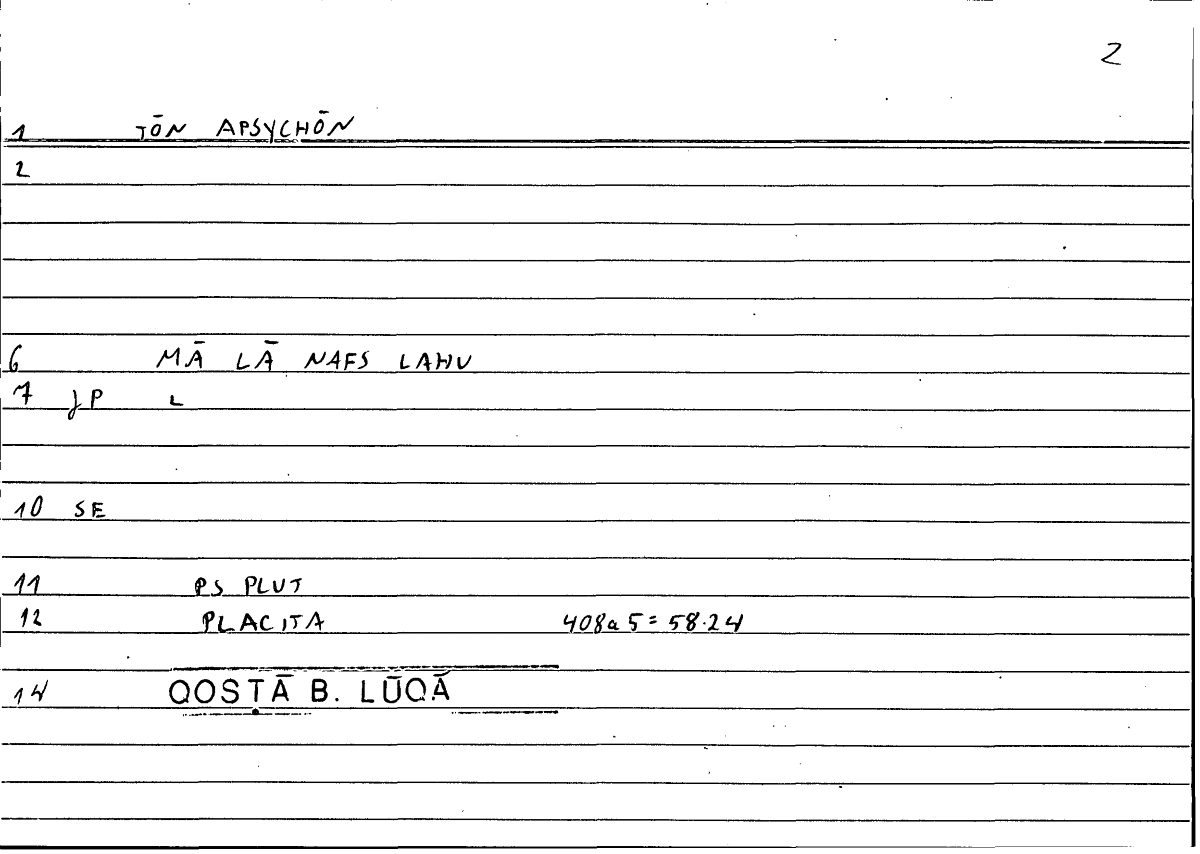 2
1 TŌN APSYCHŌN
2
6 MĀ LĀ NAFS LAHU
7 JP L
10 SE
11 PS PLUT
12 PLACITA 408a5=58.24
14 QOSṬĀ B. LŪQĀ